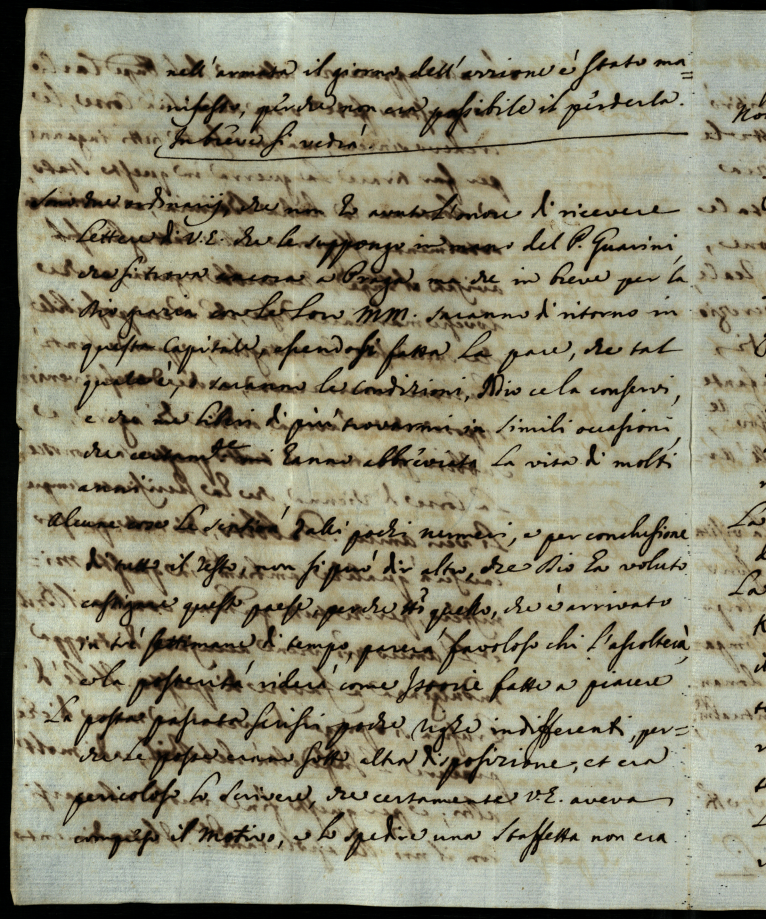 nell'armata il giorno dell'azzione è stato ma=
nifesto, perche non era possibile il perderla.
In breve si vedrà
Sono due ordinarij, che non ho avuto l'onore di ricevere
Lettere di V.E. che le suppongo in mano del P. Guarini,
che si trova ancora a Praga, ma che in breve per la
Dio grazia con le Loro MM. saranno di ritorno in
questa Capitale, essendosi fatta la pace, che tal
quale è, e saranno le condizioni, Dio ce la conservi,
e che me liberi di più trovarmi in simili occasioni,
che certam.te mi hanno abbreviata la vita di molti
anni.
Alcune cose le sentirà dalli fogli numeri, e per conclusione
di tutto il resto, non si può dir altro, che Dio ha voluto
castigare questo paese, perche tt.o quello, che è arrivato
in trè settimane di tempo, parerà favoloso chi l'ascolterà,
e la posterità riderà come Istorie fatte a piacere
La posta passata scrissi poche righe indifferenti, per=
che le poste erano sotto altra disposizione, et era
pericoloso lo scrivere, che certamente V.E. aveva
compreso il motivo, e lo spedire una Staffetta non era
La
La